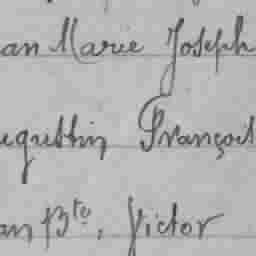 an Marie Joseph
egustin François
an Bte, Victor